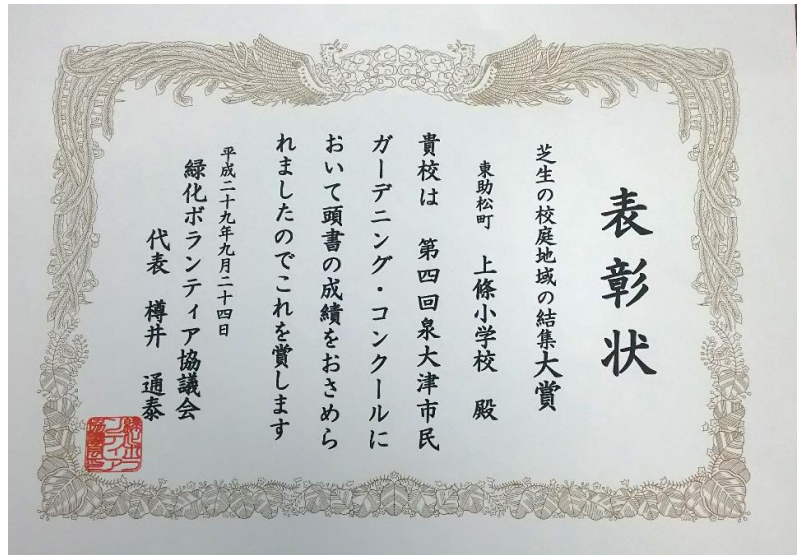 表彰状
芝生の校庭地域の結集大賞
東助松町 上條小学校 殿
貴校は 第四回泉大津市民
ガーデニング・コンクールに
おいて頭書の成績をおさめら
れましたのでこれを賞します
平成二十九年九月二十四日
緑化ボランティア協議会
代表 樽井 通泰
緑化ボラ
ンティア
協議会印